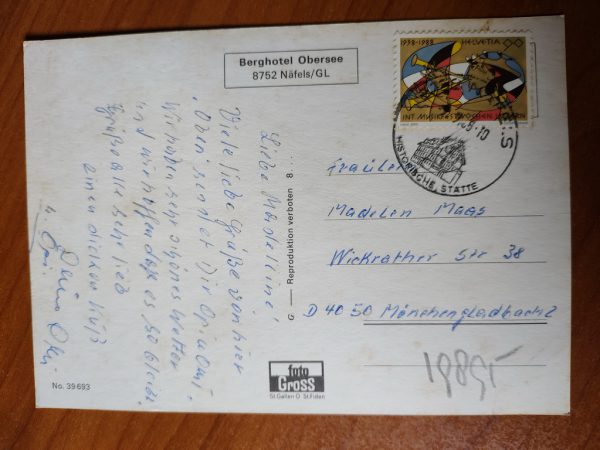 Berghotel Obersee
8752 Näfels/GL
1938-1988 HELVETIA
INT. MUSIKFESTWOCHEN
HISTORISCHE STÄTTE
Liebe Madeleine!
Viele liebe Grüße von hier
Oben sendet Dir
Wir haben sehr schönes Wetter
und wir hoffen daß es so bleibt
Grüße alle sehr lieb
einen dicken Kuß
Deine
Fräulein
Madelen Maas
Wickrather Str 38
D 4050 Mönchengladbach 2
1989
G — Reproduktion verboten 8...
foto
GROSS
St.Gallen O St.Fiden
No. 39 693